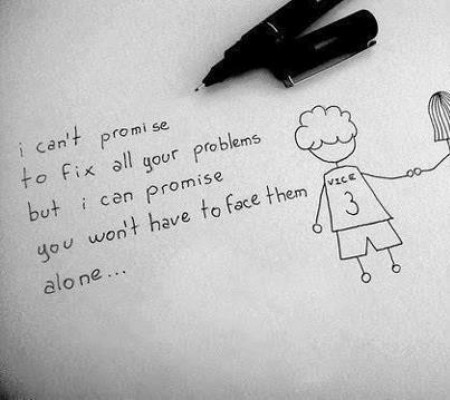 i can't promise
to fix all your problems
but i can promise
you won't have to face them
alone...
VICE
3